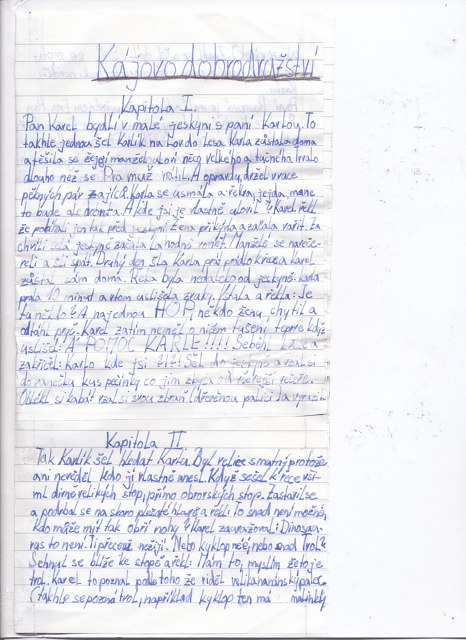 Kájovo dobrodružství
Kapitola I.
Pan Karel bydlí v malé jeskyni s paní Karlou. To
takhle jednou šel Karlík na lov do lesa Karla zůstala doma
a těšila se že její manžel uloví něco velkého a tučného. trvalo
dlouho než se Prá muž vrátil. A opravdu, držel v ruce
pěkných pár zajíců. Karla se usmála a řekla, jejda, máme
to bude ale A kde jsi je vlastně ulovil? Karel řekl
že pobíhali jen tak před jeskyní. Žena přikývla a začala vařit. za
chvíli celá jeskyně začala Manželé se
a šli spát. Druhý den šla Karla prát prádlo k řece a Karel
zůstal sám doma. Řeka byla nedaleko od jeskyně. Karla
prala 10 minut a v tom uslyšela zvuky. Vstala a řekla: Je
tu někdo? A najednou HOP, někdo ženu chytil a
odtáhl pryč. Karel zatím neměl o ničem tušení teprve když
uslyšel: A POMOC KARLE!!!! Seběhl
zakřičel: Karlo kde jsi ?!?! Šel do jeskyně a
do kus pečínky co jim zbyla od večeře.
Oblékl si kabát vzal si svou zbraň (dřevěnou palici) a vyrazil.
Kapitola II
Tak Karlík šel hledat Karlu. Byl velice smutný protože
ani nevěděl kdo ji vlastně unesl. Když sešel k řece vši-
ml si velikých stop, přímo obrovských stop. Zastavil se
a podrbal se na skoro hlavě a řekl: To snad není možné,
kdo může mít tak obří nohy? Karel zauvažoval: Dinosau-
rus to není. Ti přeceně nežijí. Nebo kyklop něco, nebo snad Trol?
Sehnul se blíže ke stopě a řekl: Mám to, myslím že to je
trol. Karel to poznal podle toho že viděl veliká palec.
(takhle se pozná trol, například kyklop ten má malinký